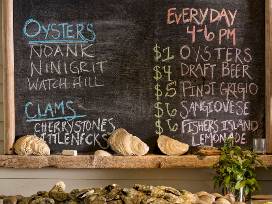 OYSTERS
NOANK
NINIGRIT
WATCH HILL
CLAMS
CHERRYSTONES
LITTLENECKS
EVERYDAY
4-6 PM
$1 OYSTERS
$4 DRAFT BEER
$5 PINOT GRIGIO
$6 SANGIOVESE
$6 FISHERS ISLAND
LEMONADE